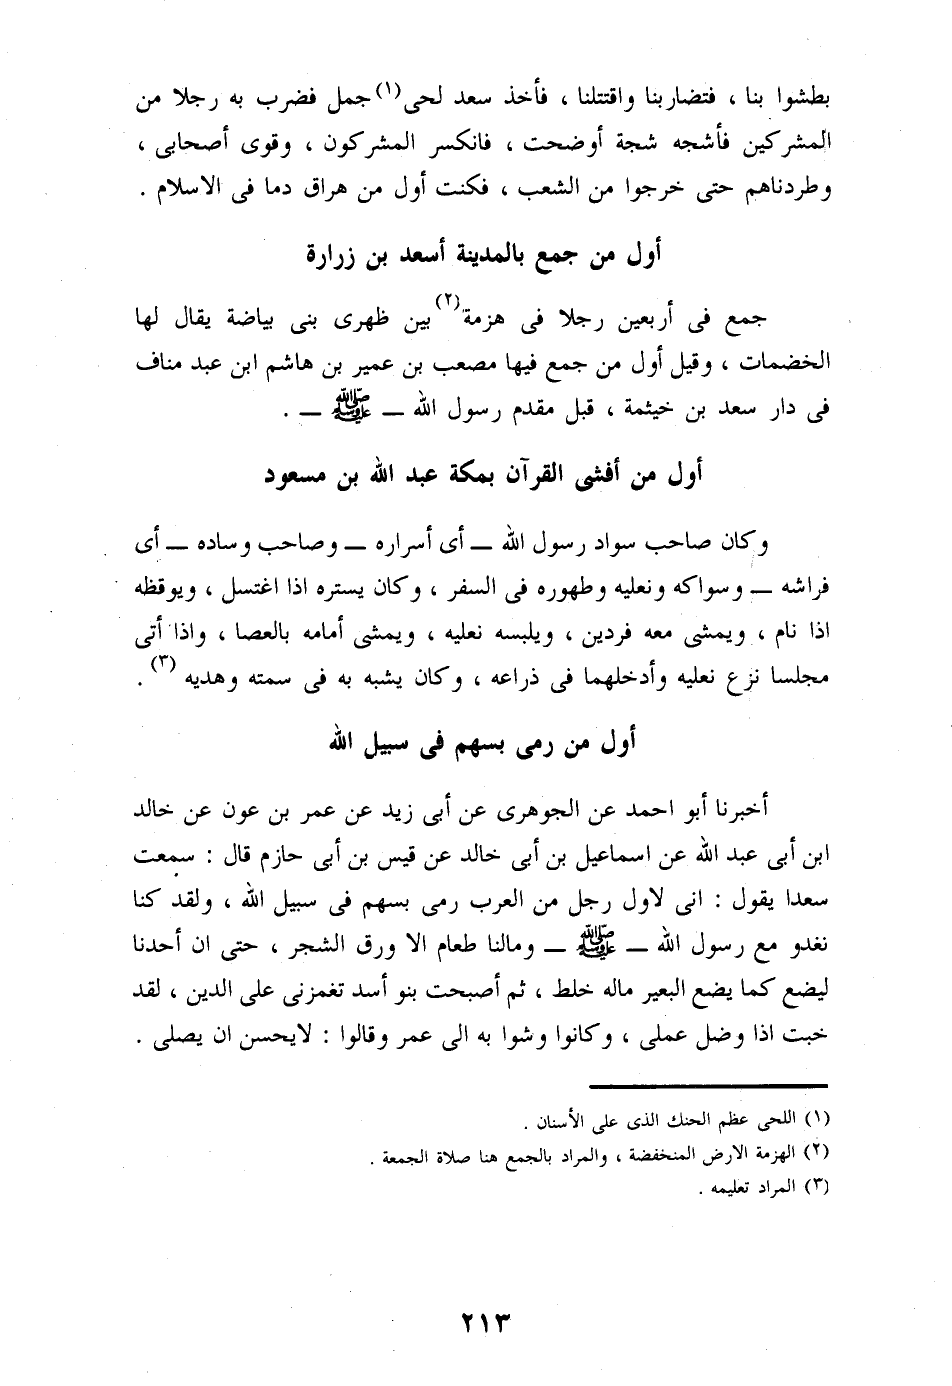 بطشوا بنا ، فتضاربنا واقتتلنا ، فأخذ سعد لحى(١) جمل فضرب به رجلا من
المشركين فأشجه شجة أوضحت ، فانكسر المشركون ، وقوى أصحابى ،
وطردناهم حتى خرجوا من الشعب ، فكنت أول من هراق دما فى الاسلام .
أول من جمع بالمدينة أسعد بن زرارة
جمع فى أربعين رجلا فى هزمة(٢) بين ظهرى بنى بياضة يقال لها
الخضمات ، وقيل أول من جمع فيها مصعب بن عمير بن هاشم ابن عبد مناف
فى دار سعد بن خيثمة ، قبل مقدم رسول الله ــ ﷺ ــ .
أول من أفشى القرآن بمكة عبد الله بن مسعود
وكان صاحب سواد رسول الله ــ أى أسراره ــ وصاحب وساده ــ أى
فراشه ــ وسواكه ونعليه وطهوره فى السفر ، وكان يستره اذا اغتسل ، ويوقظه
اذا نام ، ويمشى معه فردين ، ويلبسه نعليه ، ويمشى أمامه بالعصا ، واذا أتى
مجلسا نزع نعليه وأدخلهما فى ذراعه ، وكان يشبه به فى سمته وهديه (٣) .
أول من رمى بسهم فى سبيل الله
أخبرنا أبو احمد عن الجوهرى عن أبى زيد عن عمر بن عون عن خالد
ابن أبى عبد الله عن اسماعيل بن أبى خالد عن قيس بن أبى حازم قال : سمعت
سعدا يقول : انى لاول رجل من العرب رمى بسهم فى سبيل الله ، ولقد كنا
نغدو مع رسول الله ــ ﷺ ــ ومالنا طعام الا ورق الشجر ، حتى ان أحدنا
ليضع كما يضع البعير ماله خلط ، ثم أصبحت بنو أسد تغمزنى على الدين ، لقد
خبت اذا وضل عملى ، وكانوا وشوا به الى عمر وقالوا : لايحسن ان يصلى .
(١) اللحى عظم الحنك الذى على الأسنان .
(٢) الهزمة الارض المنخفضة ، والمراد بالجمع هنا صلاة الجمعة .
(٣) المراد تعليمه .
٢١٣